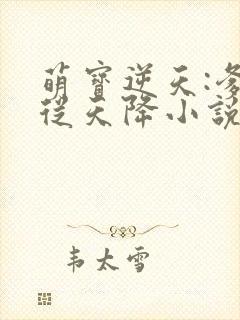 萌寶逆天:爹
從天降小說
韦太雪